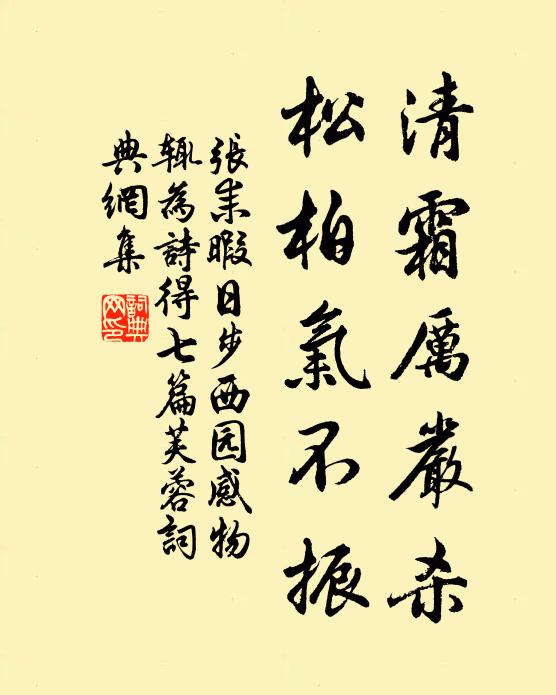 清霜厲嚴杀
松柏氣不振
張耒暇日步西园感物
輒為詩得七篇芙蓉詞
典網集
詞典网印